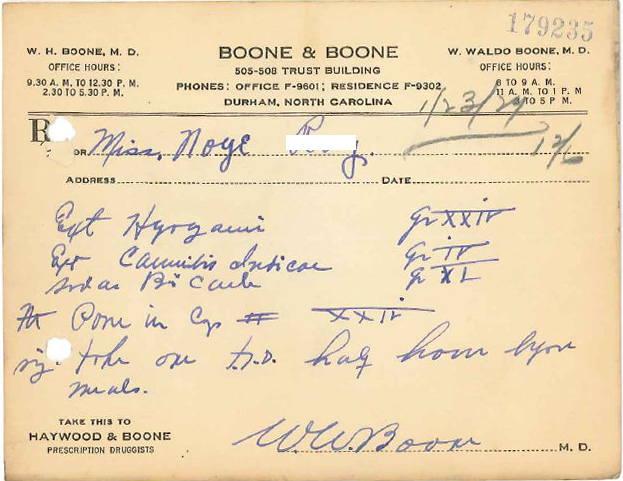 179235
W. H. BOONE, M. D.
OFFICE HOURS:
9.30 A. M. TO 12.30 P. M.
2.30 TO 5.30 P. M.
BOONE & BOONE
505-508 TRUST BUILDING
PHONES: OFFICE F-9601; RESIDENCE F-9302
DURHAM, NORTH CAROLINA
W. WALDO BOONE, M. D.
OFFICE HOURS:
8 TO 9 A. M.
11 A. M. TO 1 P. M
TO 5 P. M.
1/23/29
R
OR Miss. Noye
ADDRESS DATE
Ext Hyoscyami gr XXIV
Ext Cannibis Indicae gr IV
Sodas Bi Carb gr XL
Ft Pone in Cap # XXIV
Sig. take one t.i.d. half hour before
meals.
TAKE THIS TO
HAYWOOD & BOONE
PRESCRIPTION DRUGGISTS
W.W. Boone M. D.